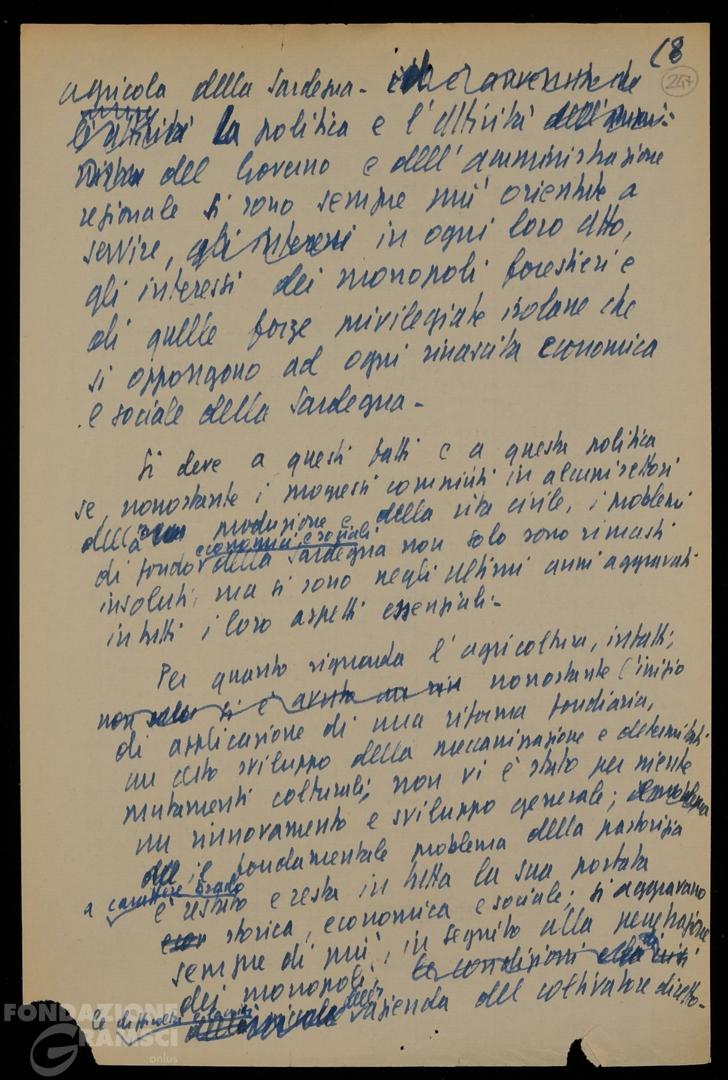 18
247
agricola della Sardegna -
La politica e l'attività
del Governo e dell'amministrazione
regionale si sono sempre più orientate a
servire, gli interessi in ogni loro atto,
gli interessi dei monopoli forestieri e
di quelle forze privilegiate isolane che
si oppongono ad ogni rinascita economica
e sociale della Sardegna -
Si deve a questi fatti e a questa politica
se, nonostante i progressi compiuti in alcuni settori
della produzione e della vita civile, i problemi
economici e sociali
di fondo della Sardegna non solo sono rimasti
insoluti, ma si sono negli ultimi anni aggravati
in tutti i loro aspetti essenziali. -
Per quanto riguarda l'agricoltura, infatti,
non solo si è avuto un nonostante l'inizio
di applicazione di una riforma fondiaria,
un certo sviluppo della meccanizzazione e determinati
mutamenti colturali, non vi è stato per niente
un rinnovamento e sviluppo generale;
il fondamentale problema della pastorizia
a carattere brado
è restato e resta in tutta la sua portata
storica, economica e sociale; si aggravano
sempre di più, in seguito alla penetrazione
dei monopoli, le condizioni
le difficoltà
azienda del coltivatore diretto -
FONDAZIONE
GRAMSCI
onlus